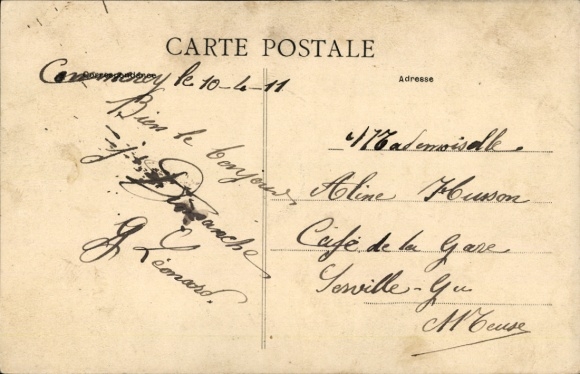 CARTE POSTALE
Commercy le 10-4-11
Adresse
Bien le bonjour,
Dimanche
G Léonard.
Mademoiselle
Aline Husson
Café de la Gare
Meuse